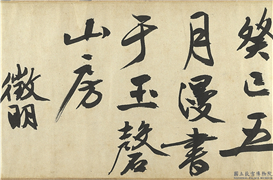 癸巳五
月漫書
于玉磬
山房
徵明
國立故宮博物院